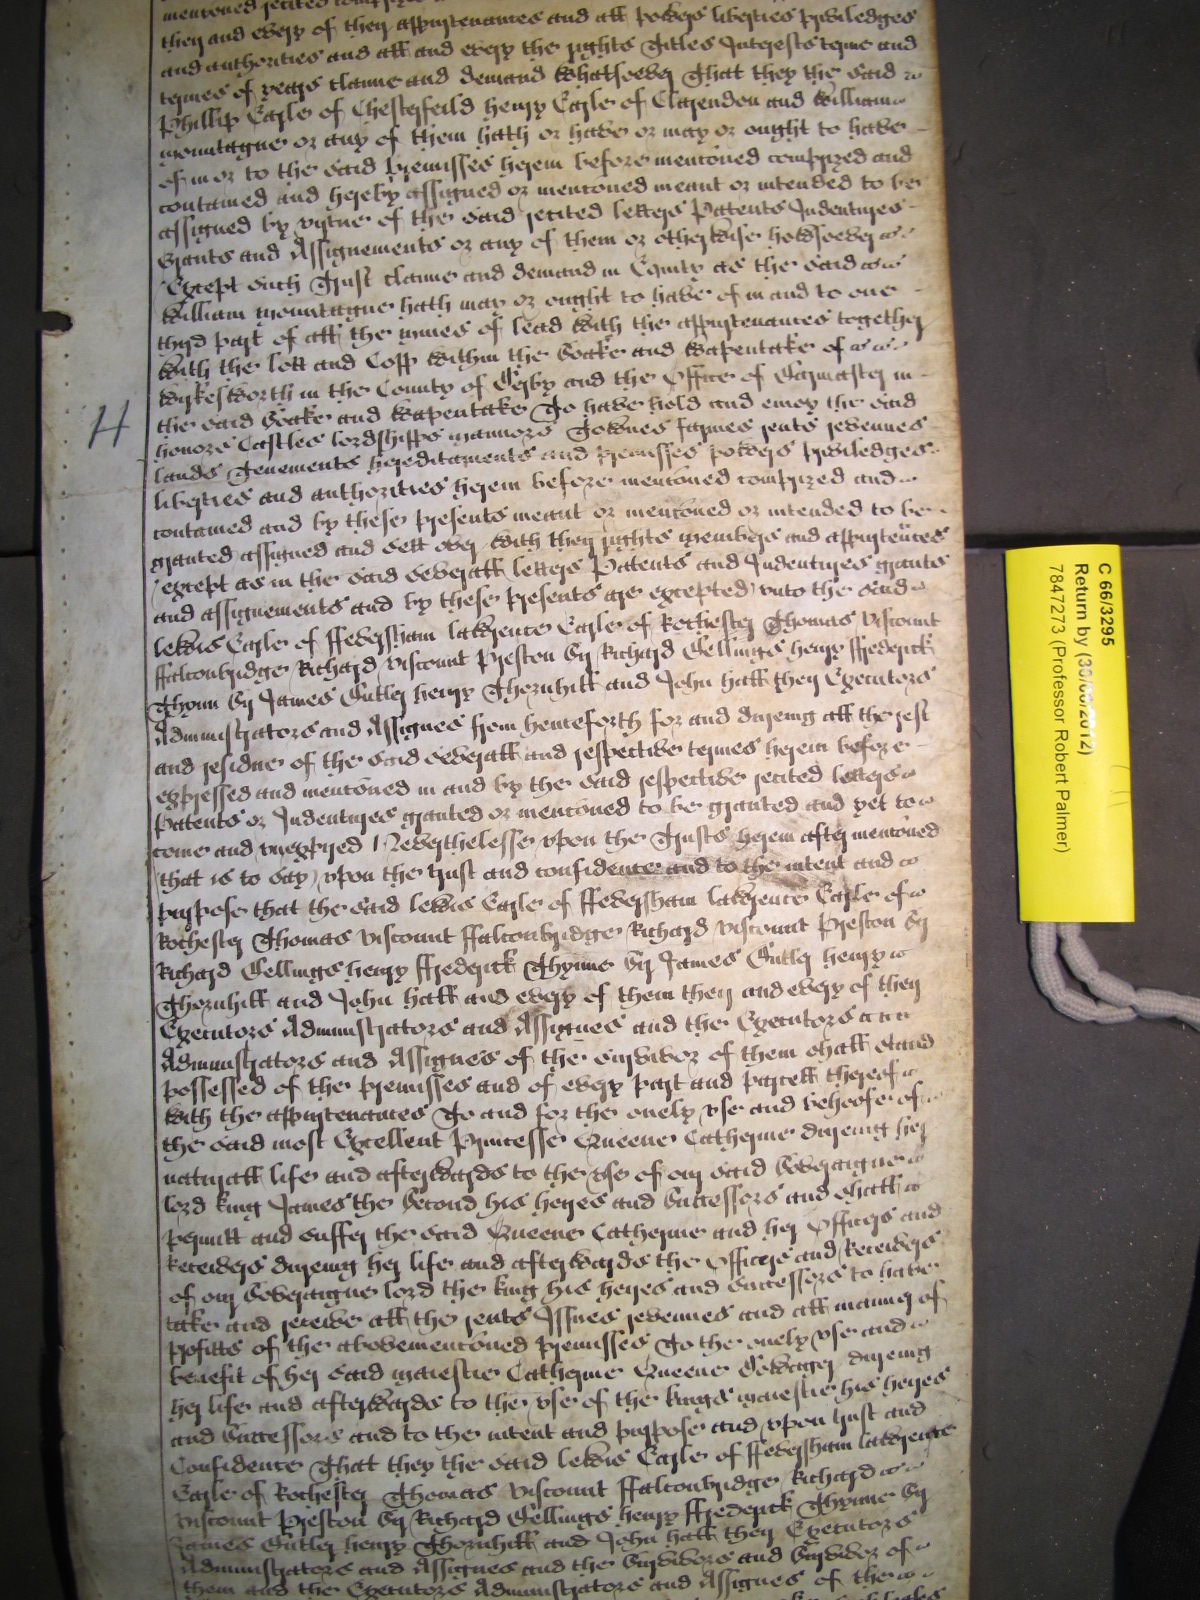 mentoned recited
they and every of their appurtenances and all powers liberties priviledges
and authorities and all and every the rights Titles Interests terme and
termes of years claime and demand whatsoever That they the said
Phillip Earle of Chesterfeild henry Earle of Clarendon and William
mountague or any of them hath or have or may or ought to have
of in or to the said Premisses herein before mentoned comprized and
contained and hereby assigned or mentoned meant or intended to be
assigned by virtue of the said recited letters Patents Indentures
Grants and Assignements or any of them or otherwise howsoever
Except such Trust claime and demand in Equity as the said
William mountague hath may or ought to have of in and to one
third part of all the mines of lead with the appurtenances together
with the lott and Copp within the Soake and wapentake of
Wirkesworth in the County of Derby and the Office of Barmaster in
the said Soake and wapentake To have hold and enioy the said
honors Castles lordshipps mannors Townes farmes rents revenues
lands Tenements hereditaments and premisses powers priviledges
liberties and authorities herein before mentoned comprized and
contained and by these presents meant or mentoned or intended to be
granted assigned and sett over with their rights members and appurtences
(except as in the said severall letters Patents and Indentures grants
and assignements and by these presents are excepted) unto the said
Lewis Earle of ffeversham lawrence Earle of Rochester Thomas Viscount
ffalconbridge Richard Viscount Preston Sr Richard Bellings henry ffrederick
Thynn Sr James Butler henry Thornhill and John hall their Executors
Administrators and Assignes from henceforth for and dureing all the rest
and residue of the said severall and respective termes herein before
expressed and mentioned in and by the said respective recited letters
Patents or Indentures granted or mentoned to be granted and yet to
come and unexpired Neverthelesse upon the Trusts herein after mentoned
that is to say, upon the trust and confidence and to the intent and
purpose that the said Lewis Earle of ffeversham lawrence Earle of
Rochester Thomas Viscount ffalconbridge Richard Viscount Preston Sr
Richard Bellings henry ffrederick Thynne Sr James Butler henry
Thornhill and John hall and every of them their and every of their
Executors Administrators and Assignes and the Executors
Administrators and Assignes of the survivor of them shall stand
possessed of the premisses and of every part and parcell thereof
with the appurtenances To and for the onely use and behoofe of
the said most Excellent Princesse Queene Catherine dureing her
naturall life and afterwards to the use of our said Soveraigne
lord king James the Second his heires and Successors and shall
permitt and suffer the said Queene Catherine and her Officers and
Receivers dureing her life and afterwards the Officers and Receivers
of our Soveraigne lord the king his heires and successors to have
take and receive all the rents Issues revenues and all manner of
profitts of the abovementoned premisses To the onely use and
benefit of her said maiestie Catherine Queene Dowager dureing
her life and afterwards to the use of the kings maiestie his heires
and Successors and to the intent and purpose and upon trust and
Confidence That they the said Lewis Earle of ffeversham lawrence
Earle of Rochester Thomas Viscount ffalconbridge Richard
Viscount Preston Sr Richard Bellings henry ffrederick Thynne Sr
James Butler henry Thornhill and John hall their Executors
Administrators and Assignes and the Survivors and Survivor of
them and the Executors Administrators and Assignes of the
H
C 66/3295
Return by (30/08/2012)
7847273 (Professor Robert Palmer)